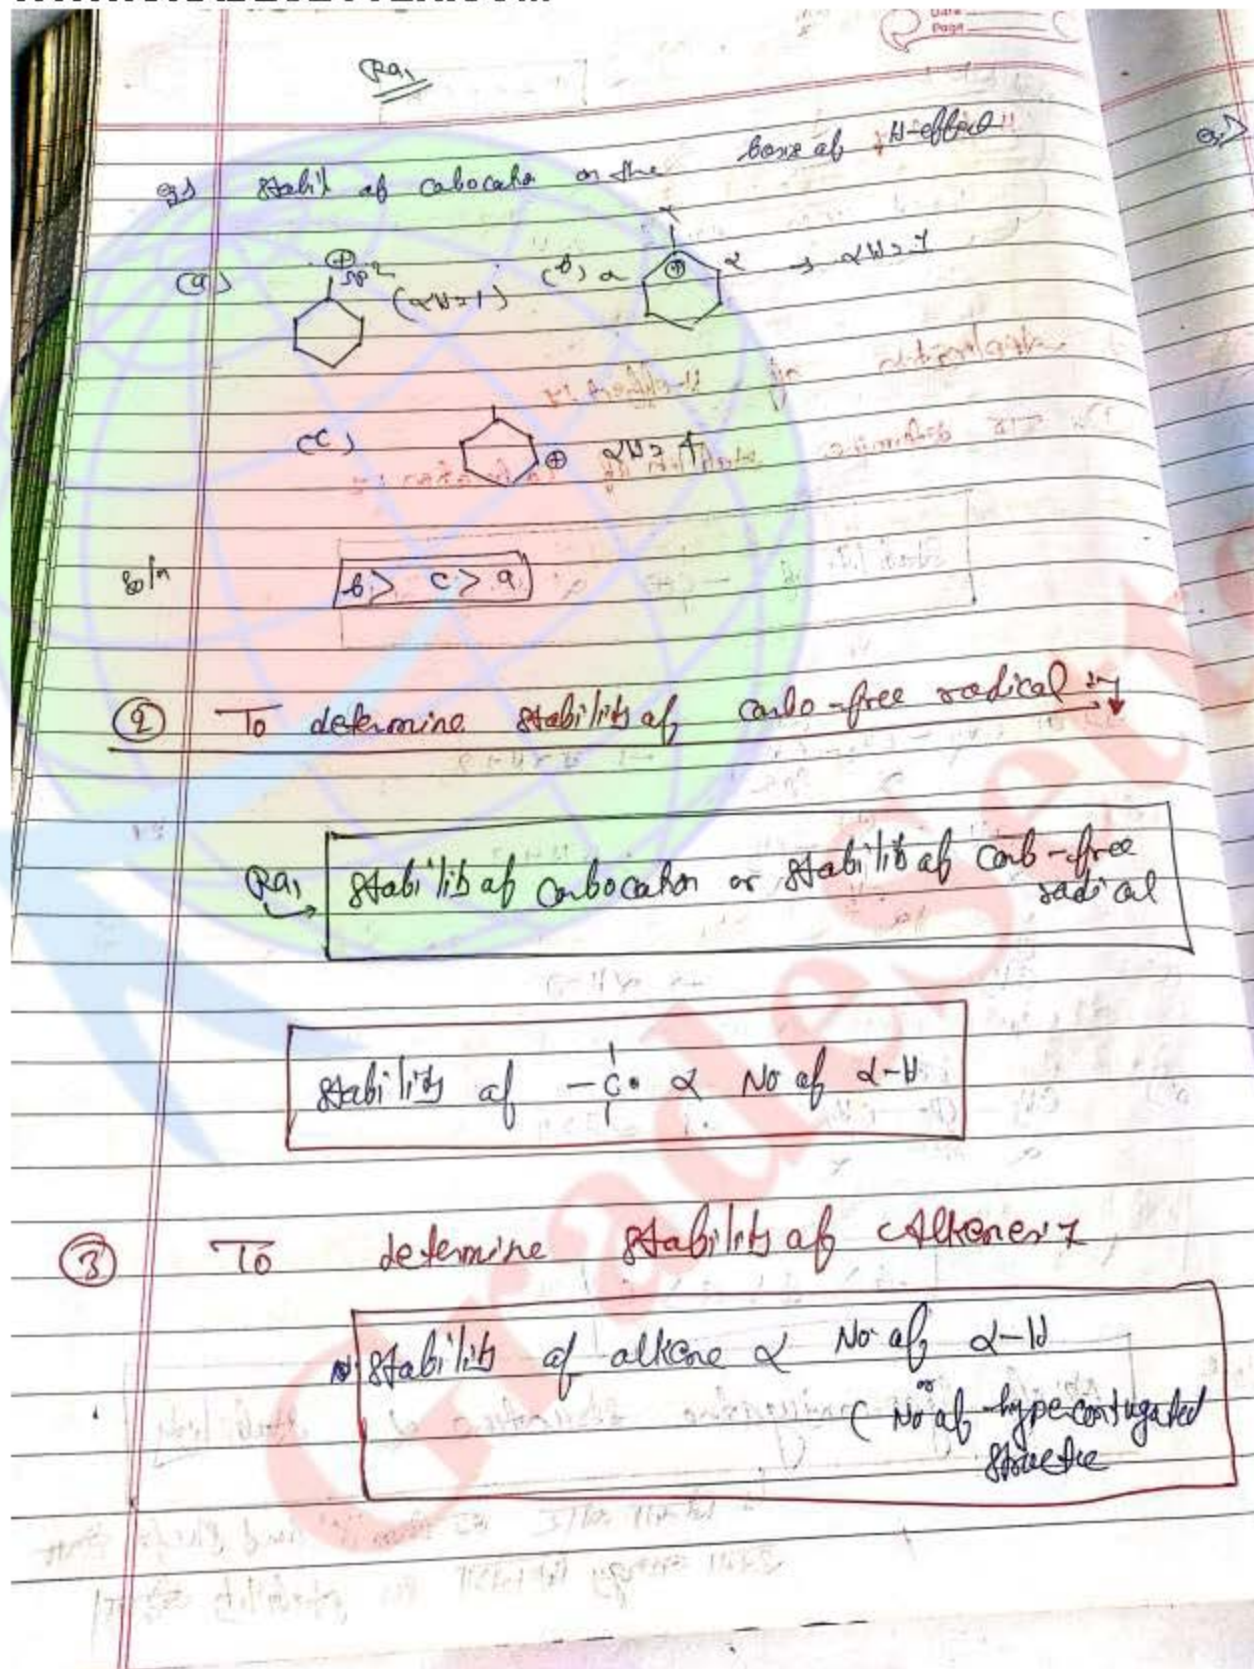 Date
Page
Raj
stabil of cabocatn on the basis of H-effect
(a) ⊕ sp² (αH=1) (b) α ⊕ α → αH=7
(c) ⊕ αH=4
Soln
b > c > a
② To determine stability of carbo-free radical :-
Raj
stability of carbocation or stability of carb-free
radical
stability of -C• α No of α-H
③ To determine stability of Alkenes :-
stability of alkene α No. of α-H
or
(No of hyperconjugated
structure
GradeSetter